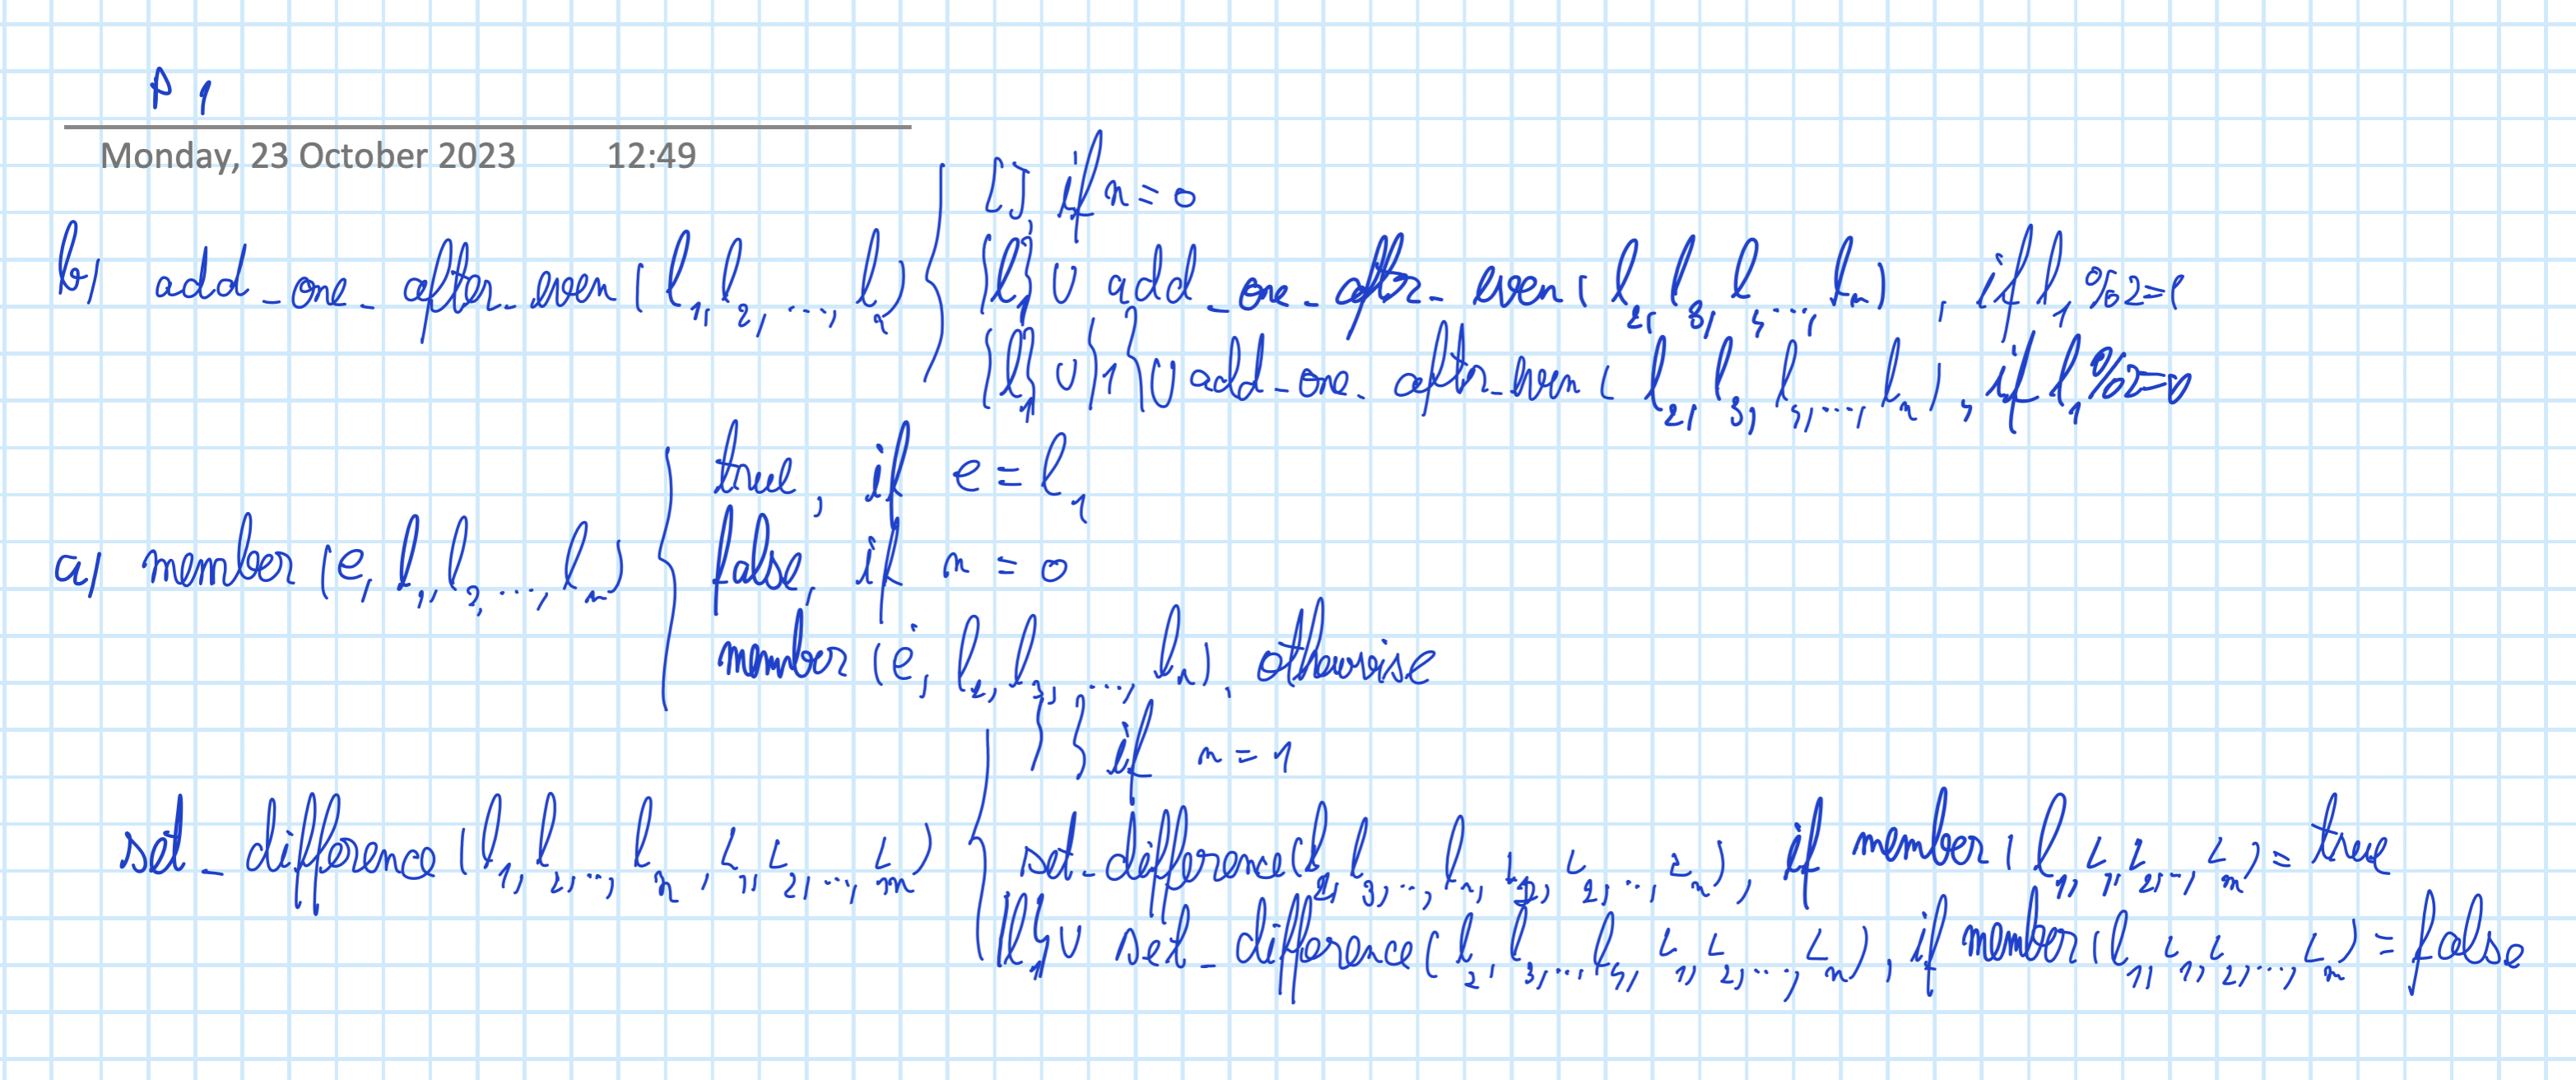 P 1
Monday, 23 October 2023 12:49
[], if n = 0
b) add_one_after_even (l1, l2, ..., ln) { {l1} ∪ add_one_after_even (l2, l3, l4, ..., ln), if l1 % 2 = 1
{l1} ∪ {1} ∪ add_one_after_even (l2, l3, l4, ..., ln), if l1 % 2 = 0
true, if e = l1
a) member (e, l1, l2, ..., ln) { false, if n = 0
member (e, l2, l3, ..., ln), otherwise
{ } if n = 1
set_difference (l1, l2, ..., ln, L1, L2, ..., Lm) { set_difference (l2, l3, ..., ln, L1, L2, ..., Ln), if member (l1, L1, L2, ..., Lm) = true
{l1} ∪ set_difference (l2, l3, ..., l4, L1, L2, ..., Ln), if member (l1, L1, L2, ..., Lm) = false